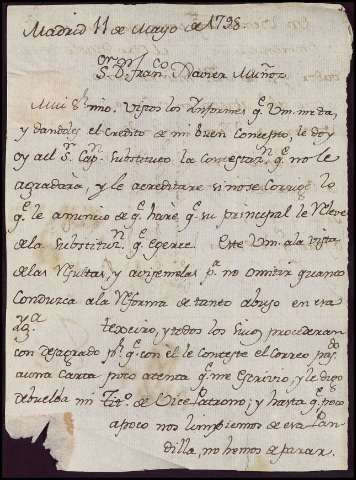 Madrid 11 de Mayo de 1798
S.or D.n Fran.co Xavier Muñoz
Mui S.r mio. Vistos los Ynformes q.e Vm. me da,
y dandoles el credito de mi buen Concepto, le doy
oy al S.r Cap.n Substituto la Contestaz.n q.e no le
agradara, y le acreditare si no se Corrige lo
q.e le anuncio de q.e haré q.e su principal le Releve
de la Substituz.n q.e egerce. Este Vm. a la vista
de las Resultas, y aviseme las p.a no omitir quanto
Conduzca a la Reforma de tanto abuso en esa
Texeiro, y todos los suos procederan
con desagrado p.r q.e con el le conteste el Correo pas.do
a una Carta poco atenta q.e me escrivio, y le digo
debuelba mi Tit.o de Vice Patrono; y hasta q.e poco
a poco nos limpiemos de esa Pan-
dilla, no hemos de parar.